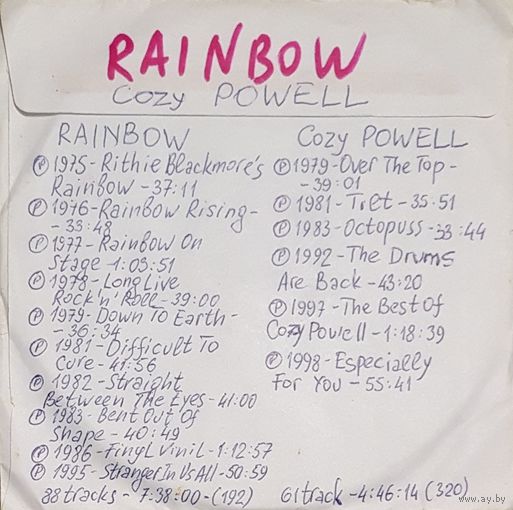 RAINBOW
Cozy POWELL
RAINBOW
Ⓟ 1975-Rithie Blackmore's
Rainbow -37:11
Ⓟ 1976-Rainbow Rising-
-33:48
Ⓟ 1977-Rainbow On
Stage -1:03:51
Ⓟ 1978-Long Live
Rock'n' Roll-39:00
Ⓟ 1979-Down To Earth-
-36:34
Ⓟ 1981-Difficult To
Cure-41:56
Ⓟ 1982-Straight
Between The Eyes-41:00
Ⓟ 1983-Bent Out Of
Shape-40:49
Ⓟ 1986-Finyl Vinil-1:12:57
Ⓟ 1995-Stranger In Us All-50:59
88 tracks - 7:38:00-(192)
Cozy POWELL
Ⓟ 1979-Over The Top-
-39:01
Ⓟ 1981-Tilt-35:51
Ⓟ 1983-Octopuss-33:44
Ⓟ 1992-The Drums
Are Back-43:20
Ⓟ 1997-The Best Of
Cozy Powell-1:18:39
Ⓟ 1998-Especially
For You-55:41
61 track -4:46:14 (320)
www.ay.by